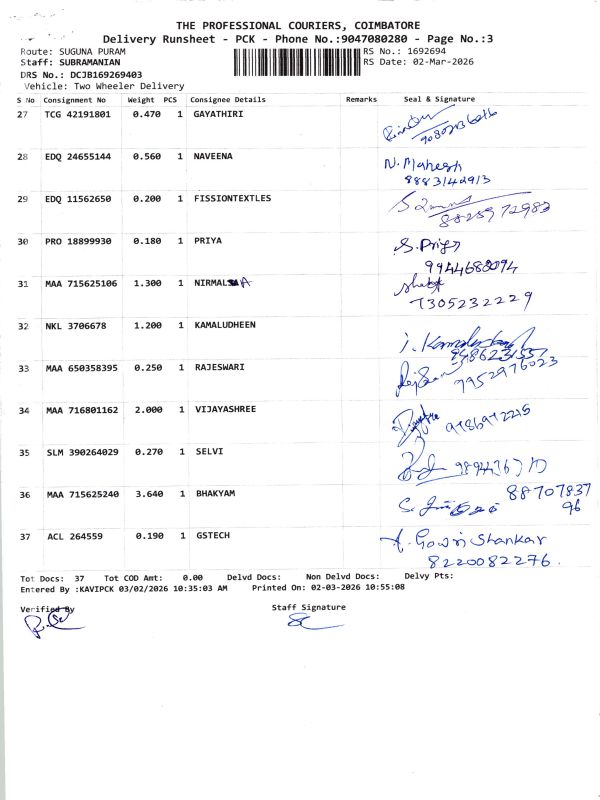 THE PROFESSIONAL COURIERS, COIMBATORE
Delivery Runsheet - PCK - Phone No.:9047080280 - Page No.:3
Route: SUGUNA PURAM RS No.: 1692694
Staff: SUBRAMANIAN RS Date: 02-Mar-2026
DRS No.: DCJB169269403
Vehicle: Two Wheeler Delivery
S No Consignment No Weight PCS Consignee Details Remarks Seal & Signature
27 TCG 42191801 0.470 1 GAYATHIRI
28 EDQ 24655144 0.560 1 NAVEENA N. Mahesh
8883142913
29 EDQ 11562650 0.200 1 FISSIONTEXTLES
8825972983
30 PRO 18899930 0.180 1 PRIYA S. Priya
9944688094
31 MAA 715625106 1.300 1 NIRMALA
7305232229
32 NKL 3706678 1.200 1 KAMALUDHEEN
33 MAA 650358395 0.250 1 RAJESWARI 9952976023
34 MAA 716801162 2.000 1 VIJAYASHREE 9786972215
35 SLM 390264029 0.270 1 SELVI
36 MAA 715625240 3.640 1 BHAKYAM 88707837
96
37 ACL 264559 0.190 1 GSTECH A. Gowri Shankar
8220082276.
Tot Docs: 37 Tot COD Amt: 0.00 Delvd Docs: Non Delvd Docs: Delvy Pts:
Entered By :KAVIPCK 03/02/2026 10:35:03 AM Printed On: 02-03-2026 10:55:08
Verified By Staff Signature